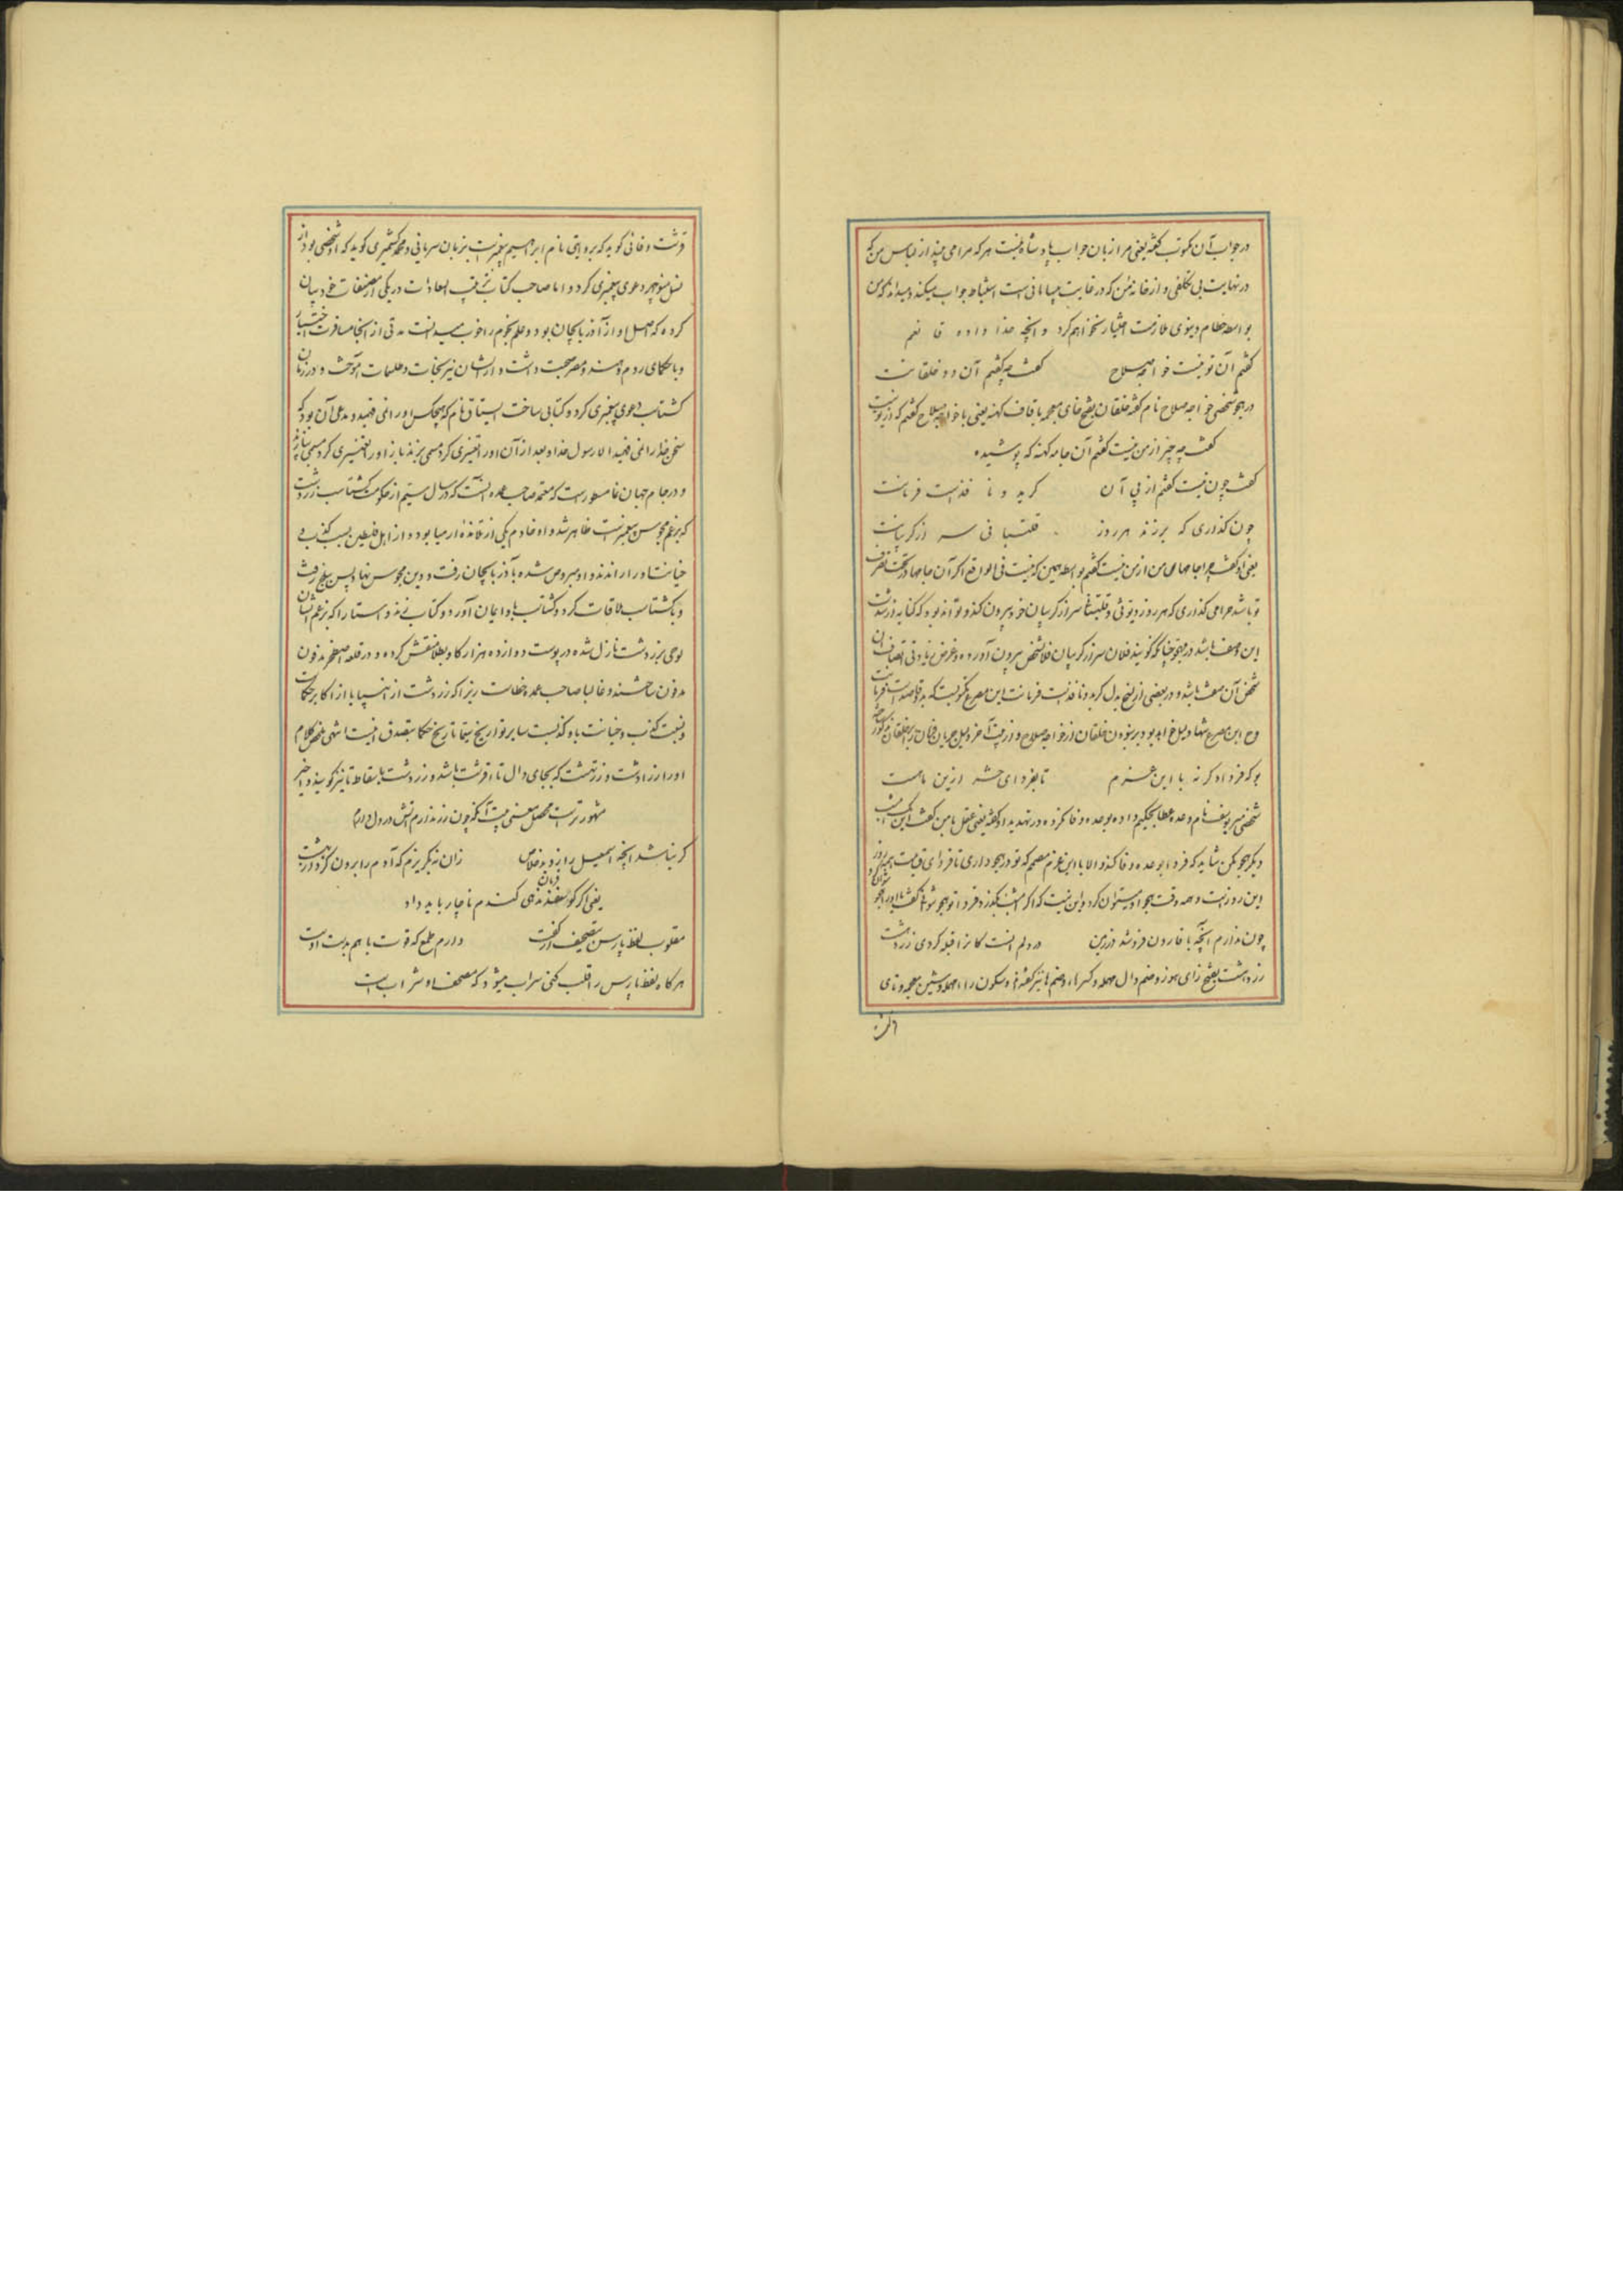 در جواب آن مکتوب گفته یعنی مرا زبان جواب پادشاه نیست هر که مرا می بیند از لباس من که
در نهایت بی تکلفی و از خانه من که در غایت بی سامانی است استنباط جواب میکند و میداند که من
بواسطه حطام دنیوی ملازمت اختیار نخواهم کرد و آنچه خدا داده قانعم
گفتم آن تو نیست خواجه صلاح گفت چه گفتم آن دو خلقانت
در هجو شخصی خواجه صلاح نام گفته خلقان بفتح خای معجمه با قاف کهنه یعنی با خواجه صلاح گفتم که از تو نیست
گفت چه چیز از من نیست گفتم آن جامه کهنه که پوشیده
گفت چون نیست گفتم از پی آن کرید و نا فذست فرمانت
چون گذاری که برزند هر روز قلتبانی سر از گریبانت
یعنی او گفت چرا جامهای من از من نیست گفتم بواسطه همین که نیست فی الواقع اگر آن جامها در تحت تصرف
تو باشد چرا می گذاری که هر روز دیوثی و قلتبانی سر از گریبان خود بیرون کند و تواند بود که کنایه از شدت
این وصف باشد در هجو چنانکه گویند فلان سر از گریبان فلان شخص بیرون آورده و غرض زیادتی اتصاف آن
شخص بآن صفت باشد و در بعضی از نسخ بدل کرید و نا فذست فرمانت این مصرع مکتوبست که
و ح این مصرع
بو که فردا وگرنه با این عزم تا بفردای حشر ازین بامست
شخصی میر یوسف نام وعده عطا بحکیم داده بوعده وفا نکرده در تهدید او گفته یعنی عقل با من گفت
دیگر هجو مکن شاید که فردا بوعده وفا کند والا با این عزم مصمم که تو در هجو داری تا فردای قیامت
این روز است و همه وقت هجو او میتوان کرد و این نیست که اگر امشب بگذرد فردا تو هجو
چون ندارم آنچه با قارون فروشد در زمین در دلم آنست کانرا قبله کردی زردهشت
زردهشت بفتح زای هوز و ضم دال مهمله و کسر ها و ضم ها نیز گفته‌اند و سکون را مهمله و شین معجمه و تای
قرشت وفائی گوید که بروایتی نام ابراهیم پیغمبرست بزبان سریانی و محمد کشمیری گوید که او شخصی بود از
نسل منوچهر دعوی پیغمبری کرد و اما صاحب کتاب در یکی از مصنفات خود بیان
کرده که اصل او از آذربایجان بود و علم نجوم را خوب میدانست مدتی از آنجا مسافرت اختیار
و با حکمای روم و هند و مصر صحبت داشت و از ایشان نیرنجات و طلسمات آموخت و در زمان
گشتاسب دعوی پیغمبری کرد و کتابی ساخت ایستا نام که هیچکس او را نمی فهمید و مدعی آن بود که
سخن خدا را نمی فهمد الا رسول خدا و بعد از آن او را تفسیری کرد مسمی بزند باز او را تفسیری کرد مسمی بپازند
و در جام جهان نما مسطور است که معتقد صاحب عمده آنست که در سال سیم از حکومت گشتاسب زردشت
که بزعم مجوس پیغمبرست ظاهر شد و او خادم یکی از تلامذه ارمیا بود و از اهل فلسطین بسبب کذب و
خیانت او را راندند و او مبروص شده بآذربایجان رفت و دین مجوس نهاد پس ببلخ رفت
و با گشتاسب ملاقات کرد و گشتاسب باو ایمان آورد و کتاب زند و استا را که بزعم ایشان
بوحی بزردشت نازل شده در پوست دوازده هزار گاو بطلا نقش کرده و در قلعه اصطخر مدفون
مدفون ساختند و غالبا صاحب عمده را خطاست زیرا که زردشت از انبیا یا از اکابر حکماست
و نسبت کذب و خیانت باو کذبست سایر تواریخ سیما تاریخ حکما بتصدق انیست انتهی ملخص کلام
او را زرادشت و زرتهشت که بجای دال تا قرشت باشد و زردشت باسقاط تا نیز گویند و اخیر
مشهورترست محصل معنی بیت آنکه چون زر ندارم آتش در دل دارم
گر نباشد آنچه اسمعیل را زو بد خلاص زان نگریزم که آدم را برون کرد از بهشت
یعنی اگر گوسفند ندهی گندم ناچار باید داد
مقلوب لفظ پارس بتصحیف از کفت دارم طمع که قوت با هم بدست اوست
هر گاه لفظ پارس را قلب کنی سراب میشود که مصحف او شراب است